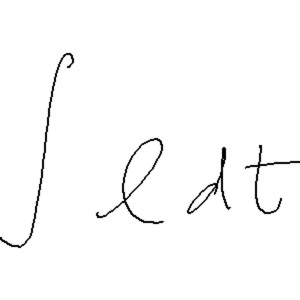 ∫ l dt